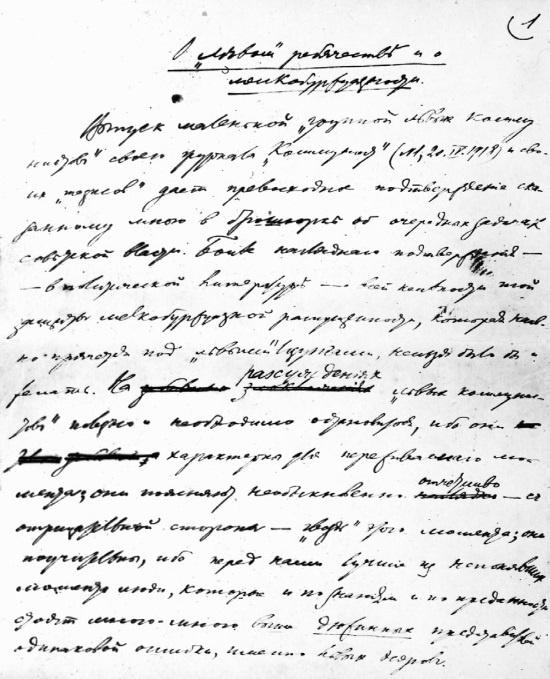 1
О „лѣвом“ ребячествѣ и о
мелкобуржуазности.
Выпуск маленькой „группой лѣвых комму
нистов“ своего журнала „Коммунист“ (№1, 20.IV.1918) и сво-
их „тезисов“ дает превосходное подтверждение ска-
занному мною в брошюрѣ об очередных задачах
совѣтской власти. Болѣе нагляднаго подтверждения —
— в политической литературѣ — всей наивности той
защиты мелкобуржуазной распущенности, которая
прячется под „лѣвыми“ лозунгами, нельзя было бы
желать. На разсуждениях „лѣвых коммунис-
тов“ полезно и необходимо остановиться, ибо они
характерны для переживаемаго мо-
мента; они поясняют необыкновенно отчетливо — с
отрицательной стороны — „гвоздь“ этого момента; они
поучительны, ибо перед нами лучшие из непонявших
момента люди, которые и по знаниям и по преданности
стоят много-много выше дюжинных представителей
одинаковой ошибки, именно лѣвых эсеров.